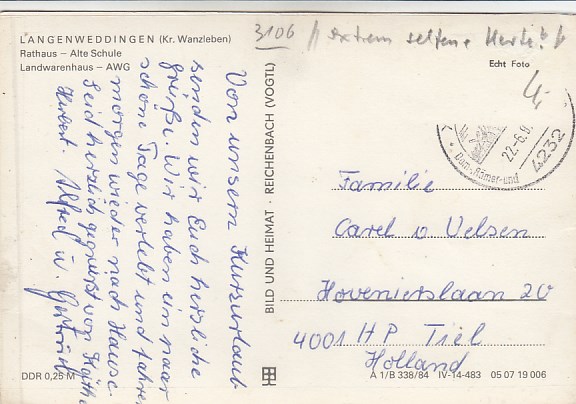 LANGENWEDDINGEN (Kr. Wanzleben)
Rathaus – Alte Schule
Landwarenhaus – AWG
3106 // extrem seltene
Echt Foto
Von unserm Kurzurlaub
senden wir Euch herzliche
Grüße. Wir haben ein paar
schöne Tage verlebt und fahren
morgen wieder nach Hause.
Seid herzlich gegrüßt von Käthe
Herbert. Alfred u. Gertrud
BILD UND HEIMAT · REICHENBACH (VOGTL)
22.-6.8
4232
Dom-, Römer- und
Familie
Carel v Velsen
Hovenierslaan 20
4001 HP Tiel
Holland
DDR 0,25 M
A 1/B 338/84 IV-14-483 05 07 19 006